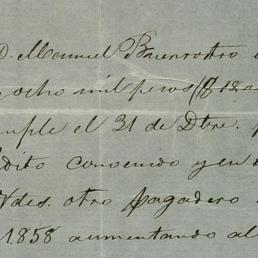 D. Manuel Buenrostro
y ocho mil pesos ($ 18
mple el 31 de Dbre.
dito conocido y en
Vdes. otro pagadero
1858 aumentando al